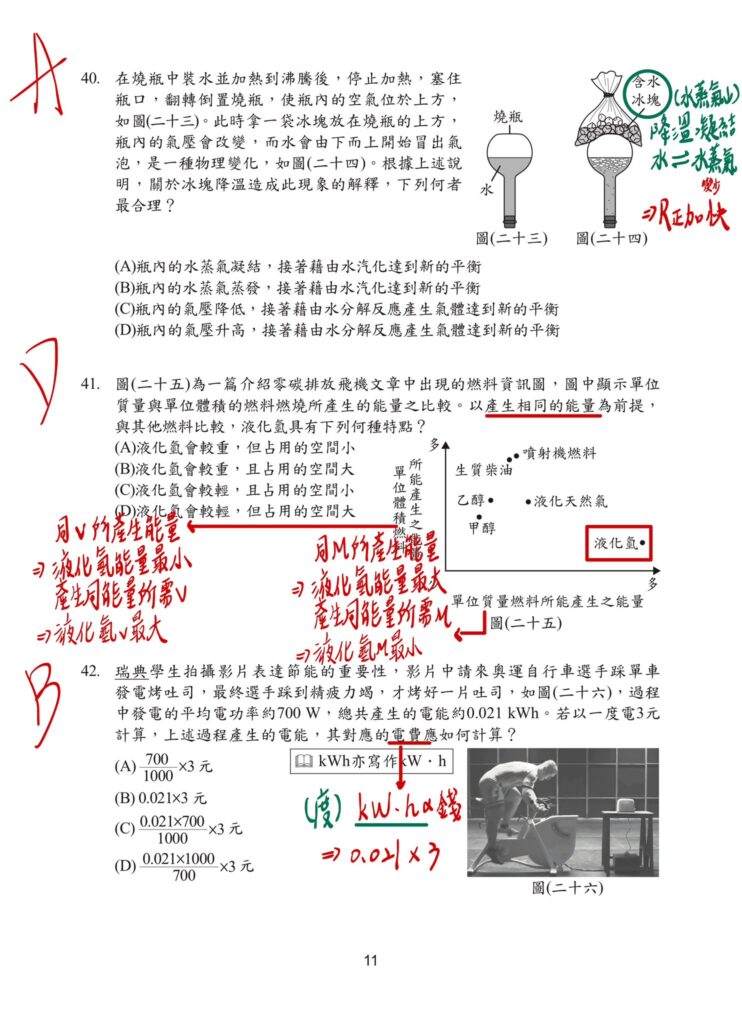 A
40. 在燒瓶中裝水並加熱到沸騰後,停止加熱,塞住
瓶口,翻轉倒置燒瓶,使瓶內的空氣位於上方,
如圖(二十三)。此時拿一袋冰塊放在燒瓶的上方,
瓶內的氣壓會改變,而水會由下而上開始冒出氣
泡,是一種物理變化,如圖(二十四)。根據上述說
明,關於冰塊降溫造成此現象的解釋,下列何者
最合理?
燒瓶
水
圖(二十三)
含水
冰塊
圖(二十四)
(水蒸氣↓)
降溫凝結
水⇌水蒸氣
變少
⇒R正加快
(A)瓶內的水蒸氣凝結,接著藉由水汽化達到新的平衡
(B)瓶內的水蒸氣蒸發,接著藉由水汽化達到新的平衡
(C)瓶內的氣壓降低,接著藉由水分解反應產生氣體達到新的平衡
(D)瓶內的氣壓升高,接著藉由水分解反應產生氣體達到新的平衡
D
41. 圖(二十五)為一篇介紹零碳排放飛機文章中出現的燃料資訊圖,圖中顯示單位
質量與單位體積的燃料燃燒所產生的能量之比較。以產生相同的能量為前提,
與其他燃料比較,液化氫具有下列何種特點?
(A)液化氫會較重,但占用的空間小
(B)液化氫會較重,且占用的空間大
(C)液化氫會較輕,且占用的空間小
(D)液化氫會較輕,但占用的空間大
多
單位體積燃料
所能產生之能量
生質柴油
噴射機燃料
乙醇
液化天然氣
甲醇
液化氫
多
單位質量燃料所能產生之能量
圖(二十五)
同V所產生能量
⇒液化氫能量最小
產生同能量所需V
⇒液化氫V最大
同M所產生能量
⇒液化氫能量最大
產生同能量所需M
⇒液化氫M最小
B
42. 瑞典學生拍攝影片表達節能的重要性,影片中請來奧運自行車選手踩單車
發電烤吐司,最終選手踩到精疲力竭,才烤好一片吐司,如圖(二十六),過程
中發電的平均電功率約700 W,總共產生的電能約0.021 kWh。若以一度電3元
計算,上述過程產生的電能,其對應的電費應如何計算?
(A) 700/1000 ×3 元
(B) 0.021×3 元
(C) 0.021×700/1000 ×3 元
(D) 0.021×1000/700 ×3 元
kWh亦寫作kW·h
(度) kW·h α 錢
⇒ 0.021 × 3
圖(二十六)
11